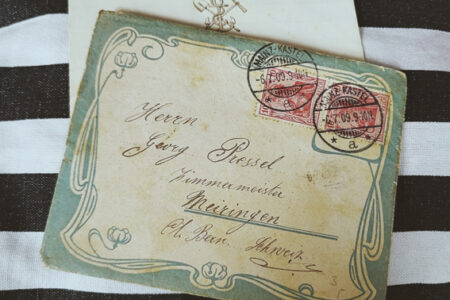 MAINZ-KASTEL
-6.7.09.9-10V.
* a *
MAINZ-KASTEL
-6.7.09.9-10V.
* a *
Herrn
Georg Pressel
Zimmermeister
Meiringen
Ct. Bern. Schweiz